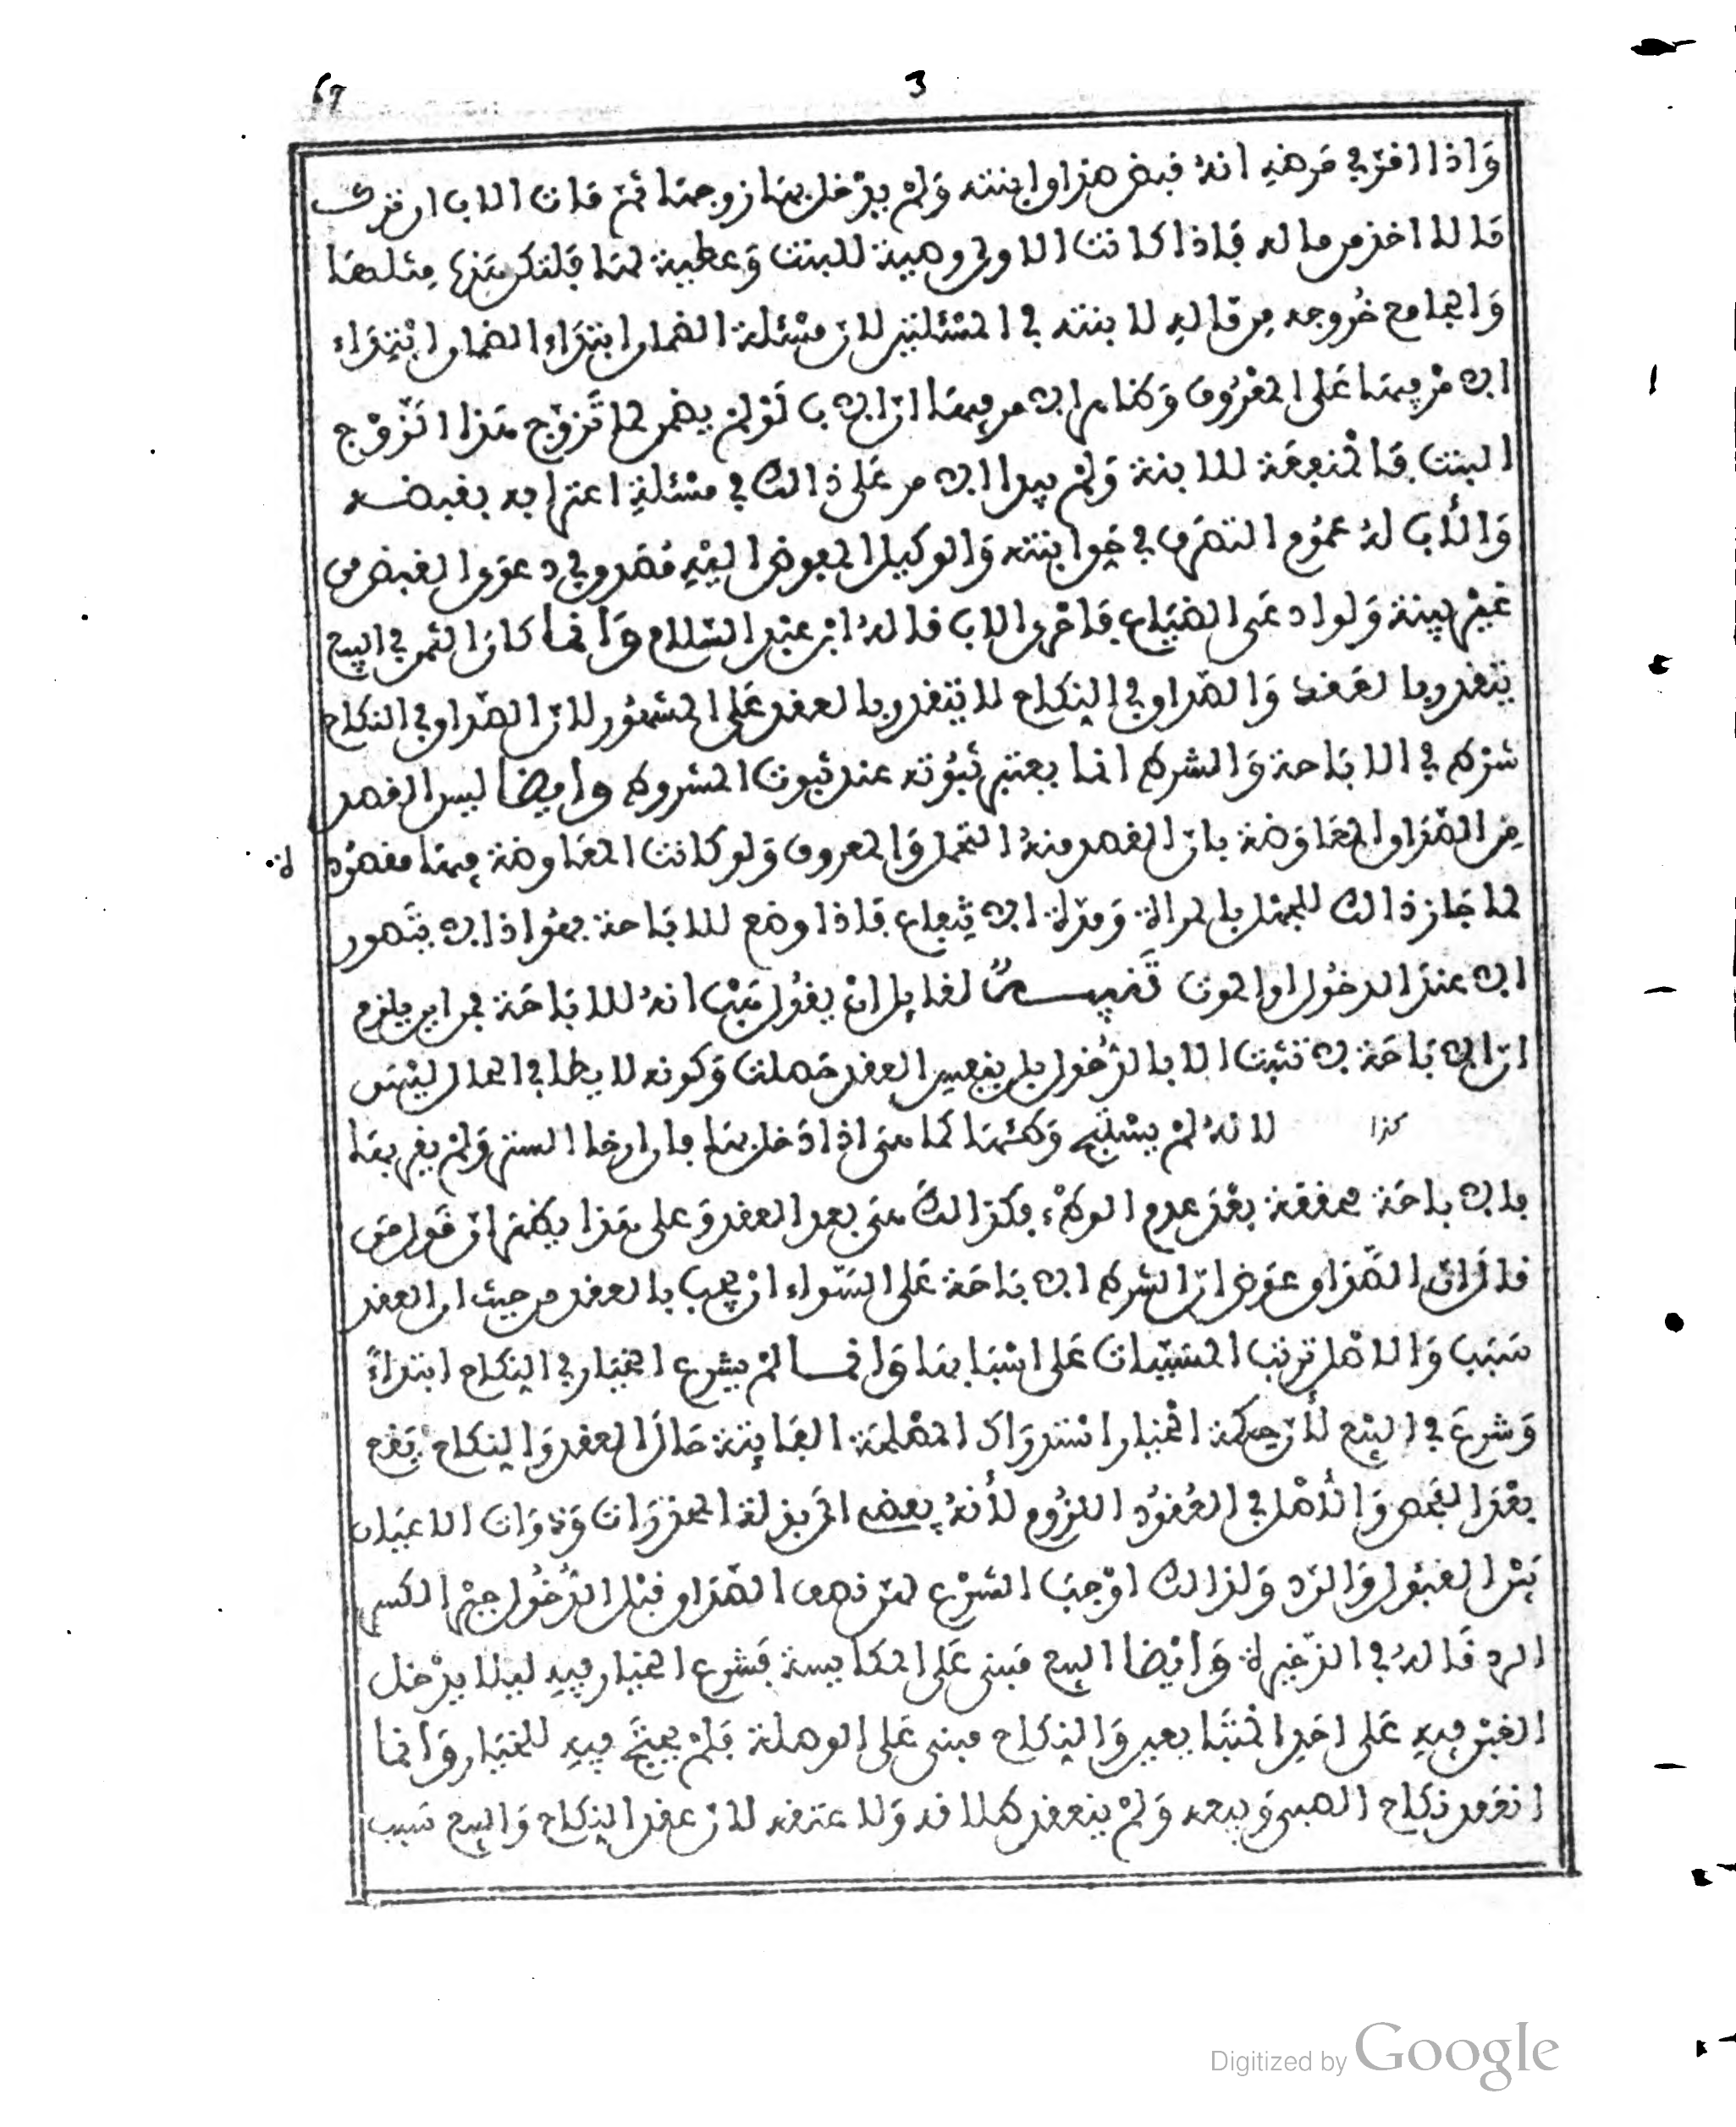 67 3
وَاذا اقرّ في مرضه انهُ قبض صداق ابنته وَلمْ يدْخل بها زوجها ثمّ مات الاب ان ترك
مالا اخذ من ماله فاذا كانت الاولى وصية للبنت وَعطية لها فلتكن هذه مثلها
وَالجامع خُروجه من ماله لابنته في المسْئلتين لانّ مسْئلة الضمان ابتدَاء الضمان ابْتِدَاء
الامْر فيها عَلى المعْرُوف وَظاهر الامر فيها انّ الاب لوْ لمْ يضمن لما تَزوّج هذا الزوْج
البنت فالمنفعَة للابنة وَلمْ يبن الامر عَلى ذالك في مسْئلة اعترافه بقبضه
وَالأب لهُ عمُوم التصَرف في حَق ابنته وَالوكيل المفوض اليْه مُصَدق في دعوَى القبض من
غيْر بينة وَلو ادعَى الضيَاع فاحْرى الاب قالهُ ابْن عبْد السّلام وَانما كانَ الثمن في البيع
يتقرر بالعَقد وَالصّداق في النكاح لا يتقرر بالعقد عَلى المشهُور لانّ الصّداق في النكاح
شرْط في الابَاحة وَالشرط انما يعتبر ثبُوته عند ثبوت المشروط وايضا ليس القصد
مِن الصّدَاق المعَاوَضة بل انّ القصد منهُ التجمل وَالمعروف وَلو كانت المعَاوضة فيها مقصوُدة
لما جَاز ذالك للجهل بالمرأة وَمدّة الانْتِفاع فاذا وضع للابَاحة فهو اذا لا يتَصور
الا عندَ الدخُول او الموت تَنبيــه لقائل انْ يقوُل هَبْ انهُ للابَاحَة فمن اين يلزم
انّ الابَاحَة لا تثبت الا بالدّخول بل بنفس العقد حَصلت وَكونه لا يطأ في الحال ليْس
كذا لانهُ لمْ يسْتبح وَطئهَا كما هي اذا دَخل بها فارخا الستر وَلمْ يقربها
فالاباحَة محققة بعْدَ عدم الوطْء فكذالكَ هي بعد العقد وَعلى هذا يظهر انّ قَول من
قالَ انّ الصّدَاق عوَض انّ الشرط الابَاحَة عَلى السّوَاء انْ يجب بالعقد من حيث ان العقد
سَبَب وَالاصْل ترتب المسَبّبات عَلى اسْبَابها وَانمــا لمْ يشرع الخيَار في النكاح ابتداءً
وَشرعَ في البيْع لأنّ حِكمة الخيَار اسْتدرَاك المصْلحَة الفَائتة حَالَ العقد وَالنكاح يَقع
بعْدَ الفحص وَالأصْل في العُقوُد اللزُوم لأنهُ بعضه
بيْن القبُول وَالرّد وَلذالك اوْجبَ الشرْع لهَا نصف الصّدَاق قبْل الدّخُول جبْرا لكسر
الرد قَالهُ في الذّخيرة وَايْضا البيع مَبني عَلى المكايسة فشرع الخيَار فيه ليلا يدْخل
الغبْن فيه عَلى احَد المتبَايعين وَالنكاح مبنى عَلى الوصلة فلمْ يحتَج فيه للخيَار وَانما
انعَقد نكاح الصبي وَبيعه وَلمْ ينعقد طلاقه وَلا عتقه لانّ عقد النكاح وَالبيع سَبب
Digitized by Google